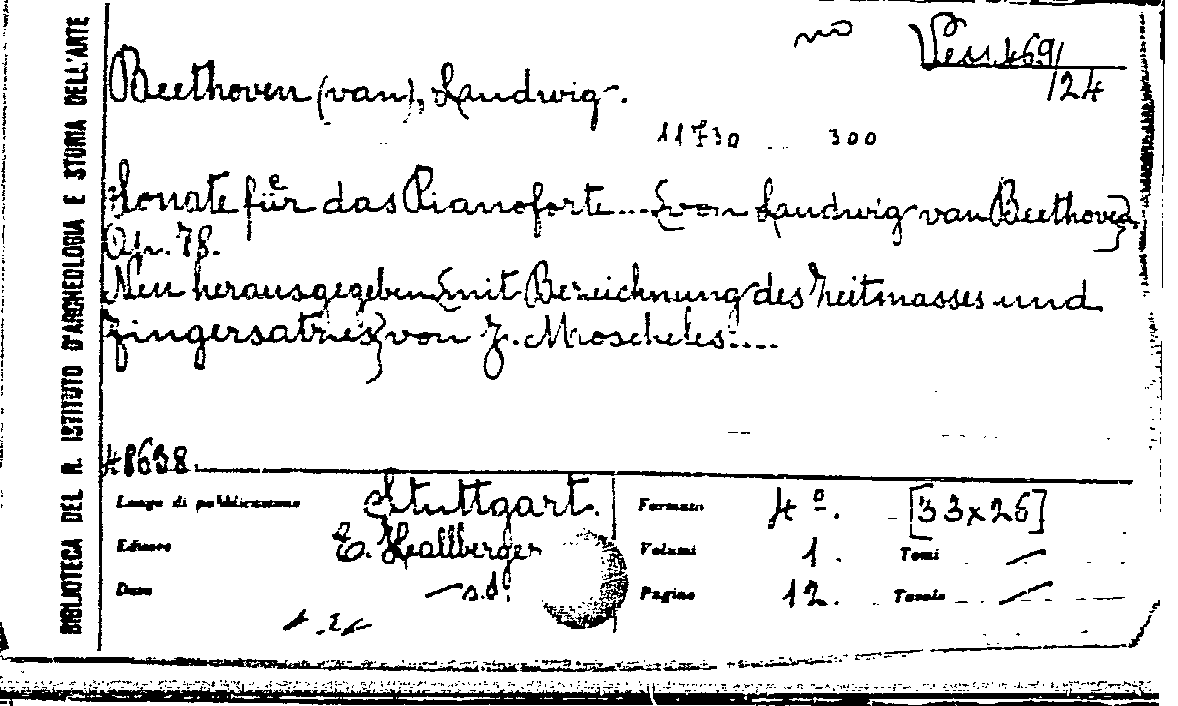 BIBLIOTECA DEL R. ISTITUTO D'ARCHEOLOGIA E STORIA DELL'ARTE
no
Vess. 469/
/24
Beethoven (van), Laudwig.
11730 300
Sonate für das Pianoforte.... [von Laudwig van Beethoven]
Op. 78.
Neu herausgegeben [mit Bezeichnung des Zeitmasses und
Fingersatzes] von J. Moscheles....
48638
Luogo di pubblicazione Stuttgart. Formato 4º. [33x26]
Editore E. Hallberger Volumi 1. Tomi —
Data — s.d. Pagine 12. Tavole —